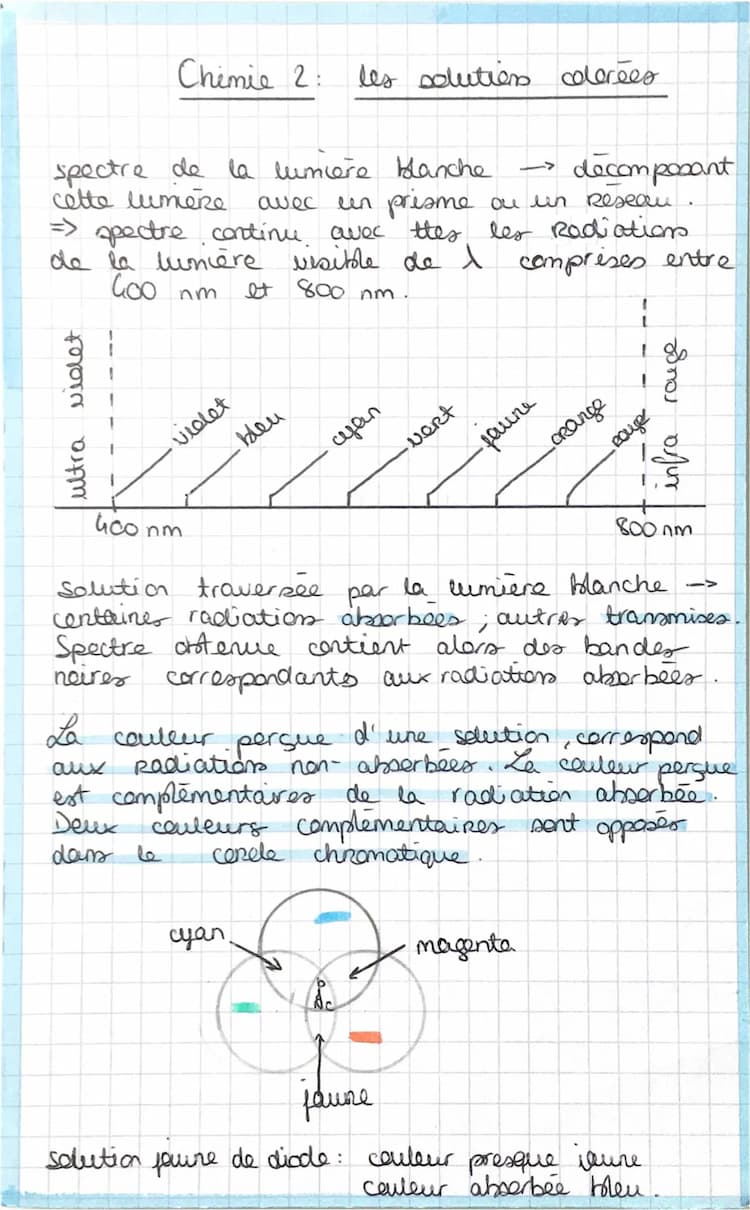 Chimie 2 : les solutions colorées
spectre de la lumière blanche → décomposant
cette lumière avec un prisme ou un réseau.
=> spectre continu avec ttes les radiations
de la lumière visible de λ comprises entre
400 nm et 800 nm.
ultra violet
violet
bleu
cyan
vert
jaune
orange
rouge
infra rouge
400 nm
800 nm
Solution traversée par la lumière blanche →
certaines radiations absorbées ; autres transmises.
Spectre obtenue contient alors des bandes
noires correspondants aux radiations absorbées.
La couleur perçue d'une solution, correspond
aux radiations non-absorbées. La couleur perçue
est complémentaires de la radiation absorbée.
Deux couleurs complémentaires sont opposés
dans le cercle chromatique.
cyan
magenta
jaune
solution jaune de diode : couleur presque jaune
couleur absorbée bleu.